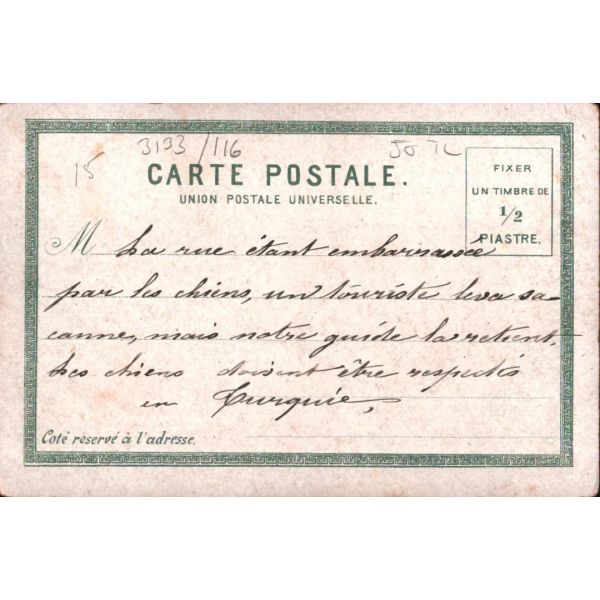 15 3133/116 50 TL
CARTE POSTALE.
UNION POSTALE UNIVERSELLE.
FIXER
UN TIMBRE DE
1/2
PIASTRE.
M La rue étant embarrassée
par les chiens, un touriste leva sa
canne, mais notre guide la retient.
Les chiens doivent être respectés
en Turquie,
Coté réservé à l'adresse.